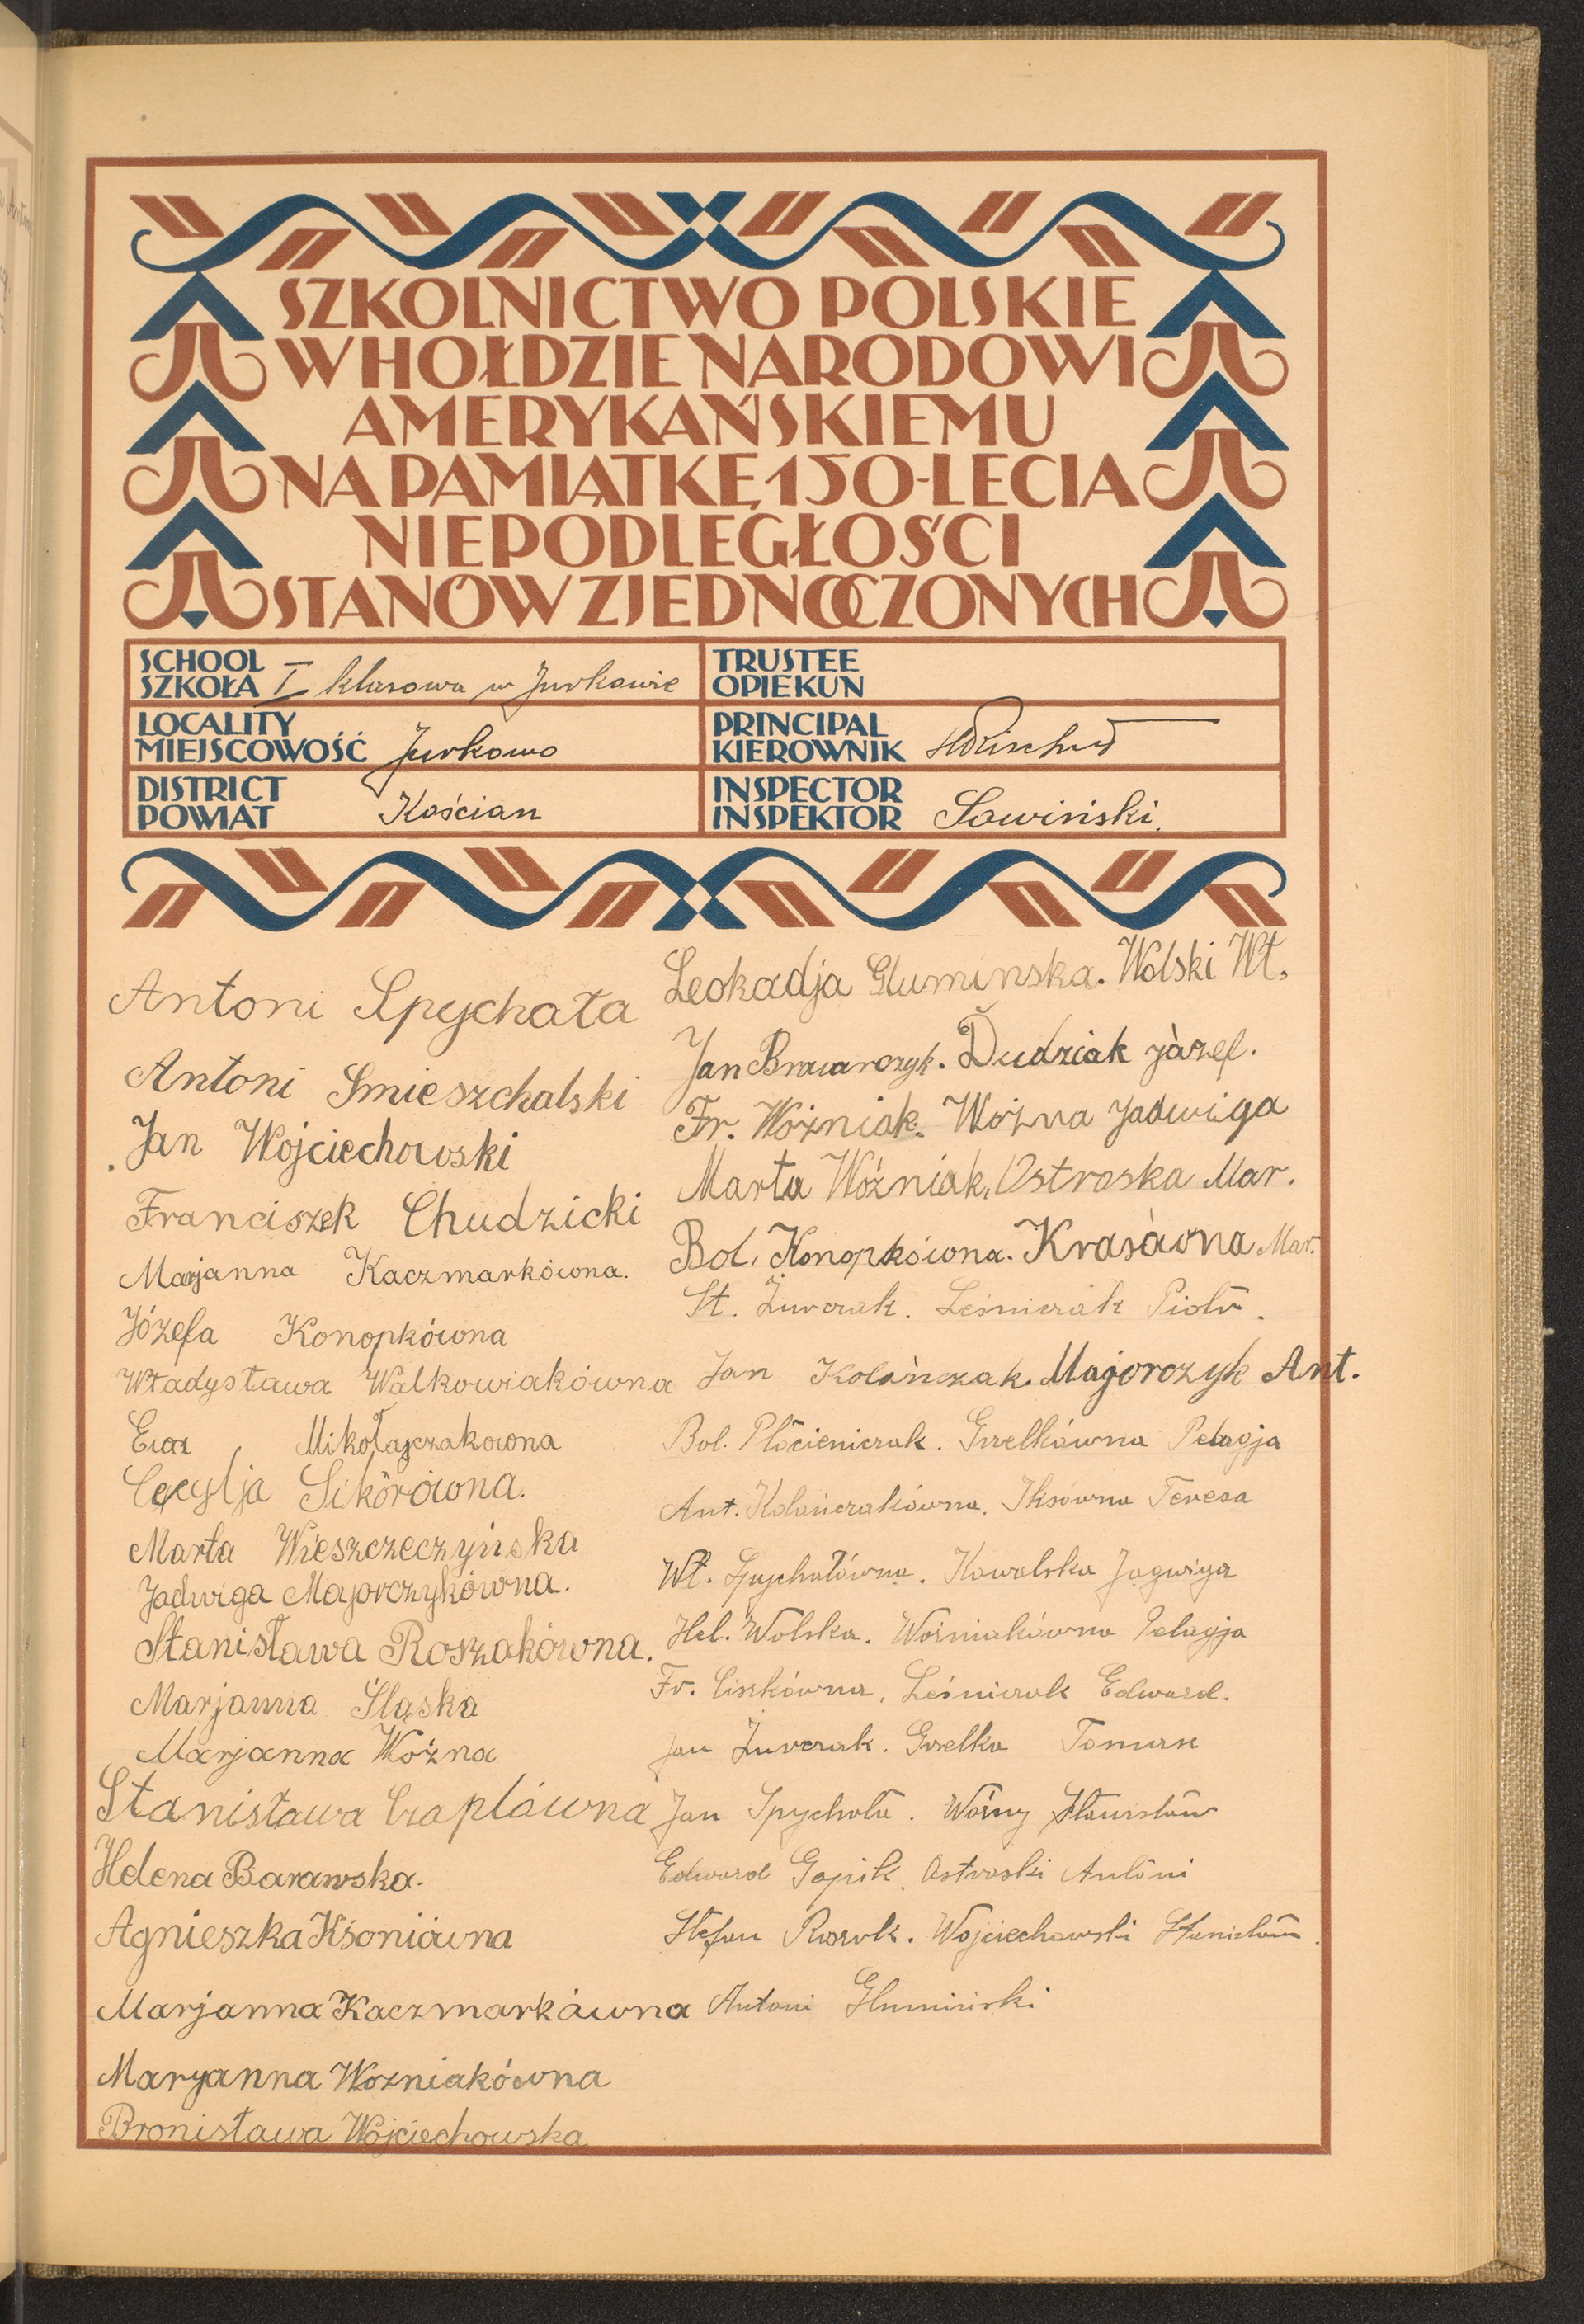 SZKOLNICTWO POLSKIE
W HOŁDZIE NARODOWI
AMERYKAŃSKIEMU
NA PAMIĄTKĘ 150-LECIA
NIEPODLEGŁOŚCI
STANÓW ZJEDNOCZONYCH
SCHOOL
SZKOŁA I klasowa w Jurkowie
TRUSTEE
OPIEKUN
LOCALITY
MIEJSCOWOŚĆ Jurkowo
PRINCIPAL
KIEROWNIK
DISTRICT
POWIAT Kościan
INSPECTOR
INSPEKTOR Sawiński.
Antoni Spychała
Antoni Smieszchalski
Jan Wojciechowski
Franciszek Chudzicki
Marjanna Kaczmarkówna.
Józefa Konopkówna
Władysława Walkowiakówna
Ewa Mikołajczakowna
Cecylja Sikórówna.
Marta Wieszczeczyńska
Jadwiga Majorczykówna.
Stanisława Roszakówna.
Marjanna Śląska
Marjanna Woźna
Stanisława Czaplówna
Helena Barawska.
Agnieszka Kśoniówna
Marjanna Kaczmarkówna
Maryanna Wozniakówna
Bronisława Wojciechowska
Leokadja Gluminska. Wolski Wł.
Jan Brawarczyk. Dudziak Józef.
Fr. Wóżniak. Woźna Jadwiga
Marta Wóźniak, Ostroska Mar.
Bol. Konopkówna. Krasàwna Mar.
St. Żurczak. Leśniczak Piotr.
Jan Kolańczak. Majorczyk Ant.
Bol. Płócieniczak. Grzelkówna Pelagja
Ant. Kolańczakówna. Iksówna Teresa
Wł. Spychałówna. Kowalska Jagwiga
Hel. Wolska. Woźniakówna Pelagja
Fr. Ciszkówna, Leśniczak Edward.
Jan Żurczak. Grzelka Tomasz
Jan Spychała. Woźny Stanisław
Edward Gapik. Ostroski Antóni
Stefan Roszak. Wojciechowski Stanisław.
Antoni Glumiński